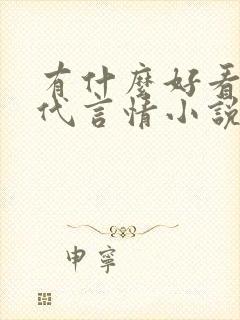 有什麼好看
代言情小說
申寧